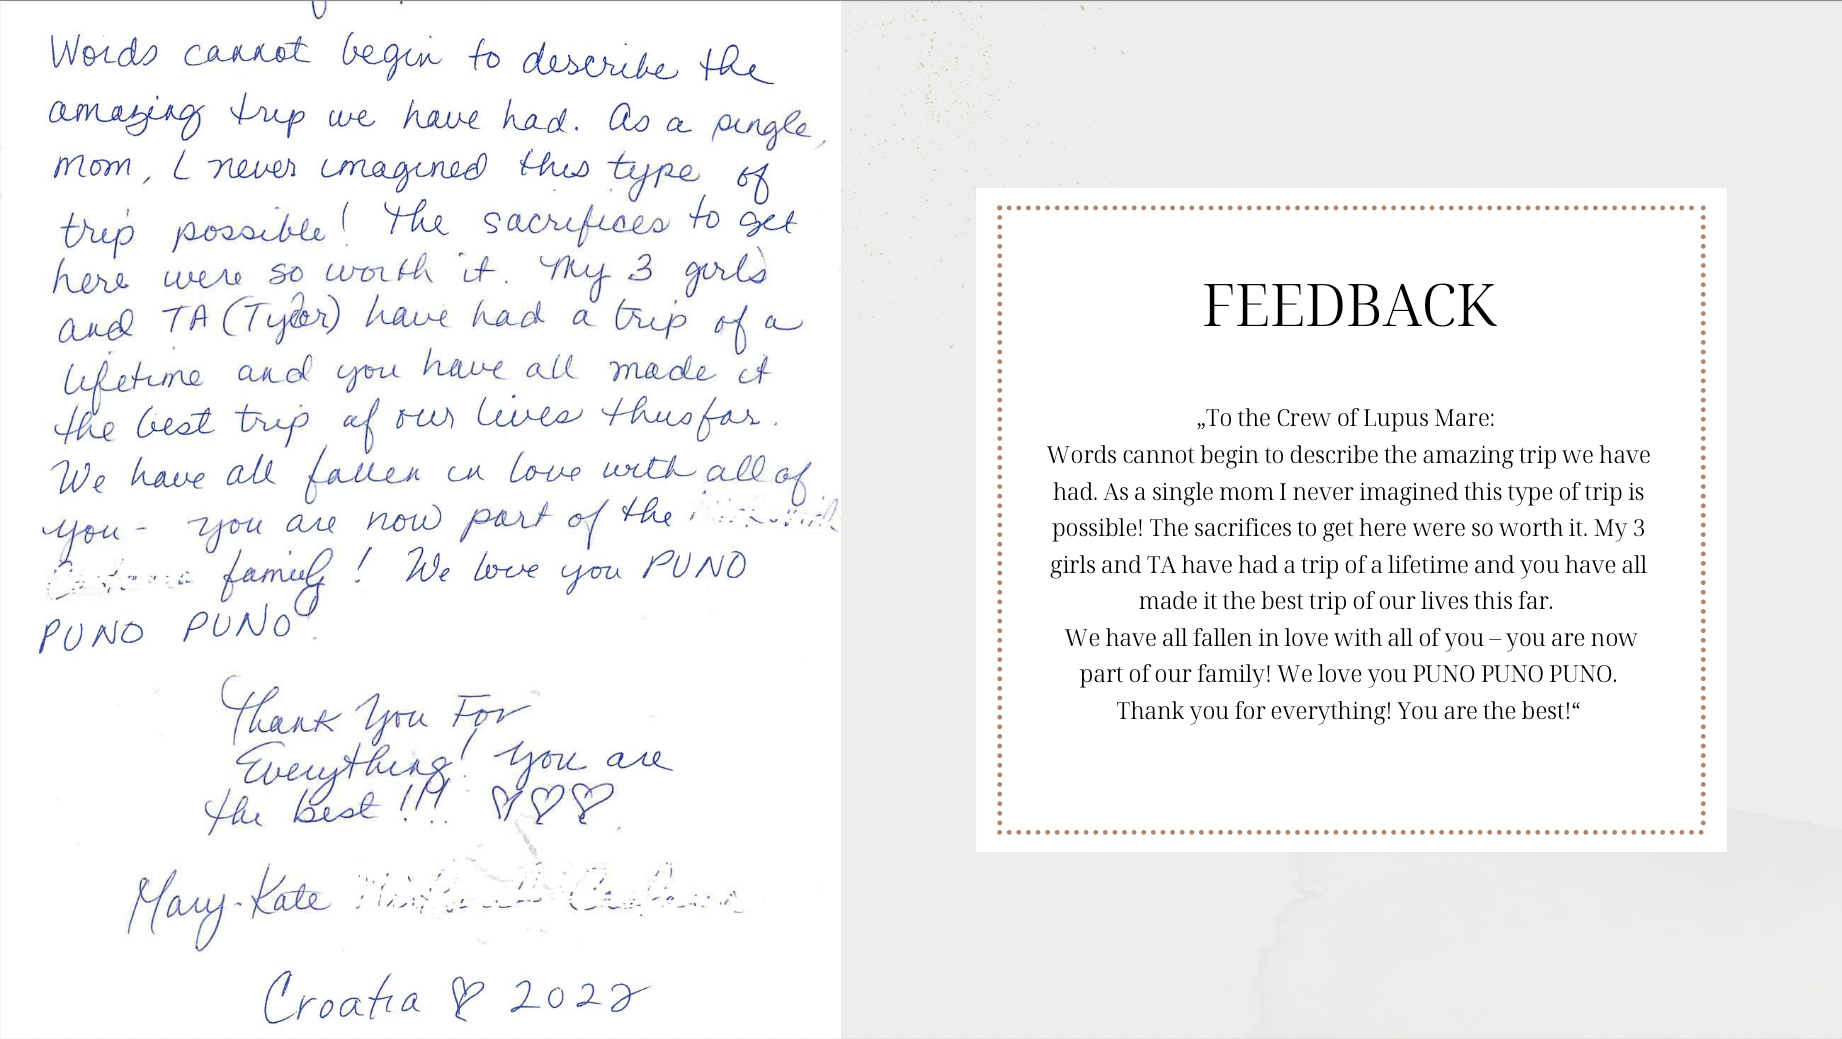 Words cannot begin to describe the
amazing trip we have had. As a single,
mom, I never imagined this type of
trip possible! The sacrifices to get
here were so worth it. My 3 girls
and TA (Tyler) have had a trip of a
lifetime and you have all made it
the best trip of our lives thusfar.
We have all fallen in love with all of
you - you are now part of the
family! We love you PUNO
PUNO PUNO.
Thank You For
Everything! You are
the best!!! ♡♡♡
Mary-Kate
Croatia ♡ 2022
FEEDBACK
„To the Crew of Lupus Mare:
Words cannot begin to describe the amazing trip we have
had. As a single mom I never imagined this type of trip is
possible! The sacrifices to get here were so worth it. My 3
girls and TA have had a trip of a lifetime and you have all
made it the best trip of our lives this far.
We have all fallen in love with all of you – you are now
part of our family! We love you PUNO PUNO PUNO.
Thank you for everything! You are the best!“